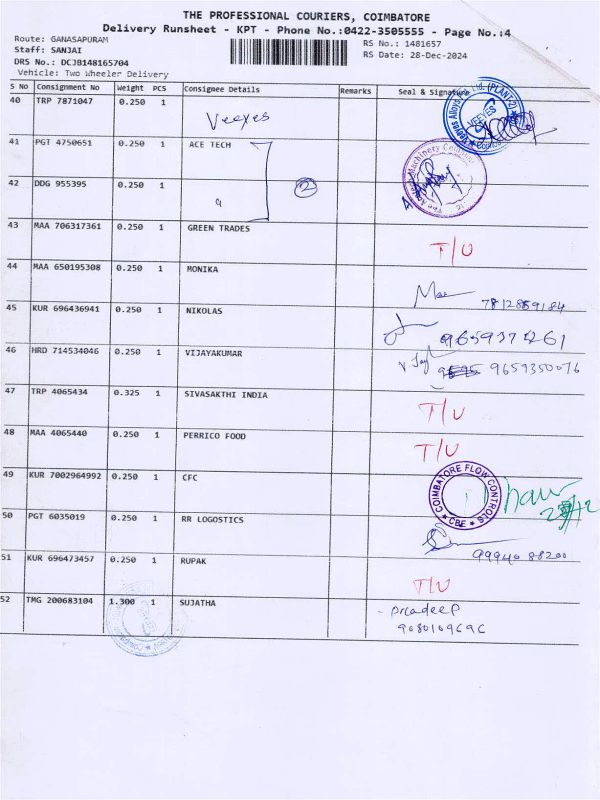 THE PROFESSIONAL COURIERS, COIMBATORE
Delivery Runsheet - KPT - Phone No.:0422-3505555 - Page No.:4
Route: GANASAPURAM
RS No.: 1481657
Staff: SANJAI
RS Date: 28-Dec-2024
DRS No.: DCJB148165704
Vehicle: Two Wheeler Delivery
S No Consignment No Weight PCS Consignee Details Remarks Seal & Signature
40 TRP 7871047 0.250 1 Veeyes
VEEYES
41 PGT 4750651 0.250 1 ACE TECH
42 DDG 955395 0.250 1 2
43 MAA 706317361 0.250 1 GREEN TRADES T/U
44 MAA 650195308 0.250 1 MONIKA
7812859184
45 KUR 696436941 0.250 1 NIKOLAS
9659377261
46 HRD 714534046 0.250 1 VIJAYAKUMAR
9659350076
47 TRP 4065434 0.325 1 SIVASAKTHI INDIA T/U
48 MAA 4065440 0.250 1 PERRICO FOOD T/U
49 KUR 7002964992 0.250 1 CFC
COIMBATORE FLOW CONTROLS
CBE
50 PGT 6035019 0.250 1 RR LOGOSTICS
99940 88200
51 KUR 696473457 0.250 1 RUPAK T/U
52 TMG 200683104 1.300 1 SUJATHA - pradeep
9080109696